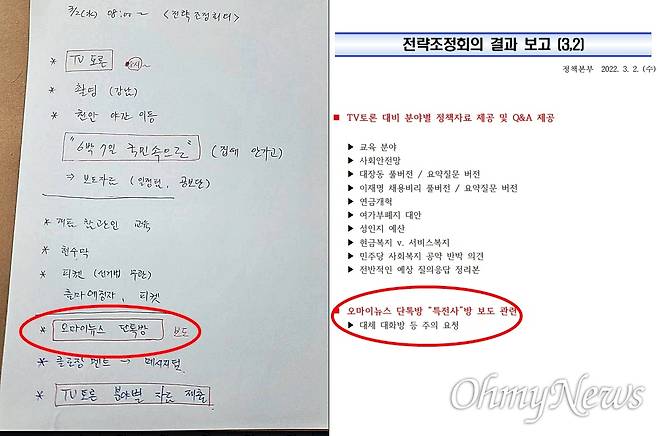 3/2(水) 08:00 ~ <전략조정회의>
* TV토론 8시~
* 촬영 (강남)
* 천안 야간 이동
"6박 7일 국민속으로" (집에 안가고)
→ 보도자료 (일정팀, 공보단)
* 개표 참관인 교육
* 현수막
* 피켓 (선거법 무관)
출마예정자, 피켓
* 오마이뉴스 단톡방 보도
* 클로징 멘트 → 메시지팀
* TV토론 분야별 자료 제출
전략조정회의 결과 보고 (3.2)
정책본부 2022. 3. 2. (수)
■ TV토론 대비 분야별 정책자료 제공 및 Q&A 제공
▶ 교육 분야
▶ 사회안전망
▶ 대장동 풀버전 / 요약질문 버전
▶ 이재명 채용비리 풀버전 / 요약질문 버전
▶ 연금개혁
▶ 여가부폐지 대안
▶ 성인지 예산
▶ 현금복지 v. 서비스복지
▶ 민주당 사회복지 공약 반박 의견
▶ 전반적인 예상 질의응답 정리본
■ 오마이뉴스 단톡방 "특전사"방 보도 관련
▶ 대세 대화방 등 주의 요청
OhmyNews